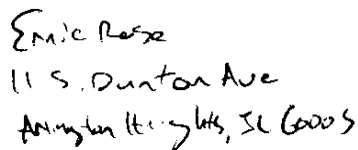 Ernie Rose
11 S. Dunton Ave
Arlington Heights, IL 60005